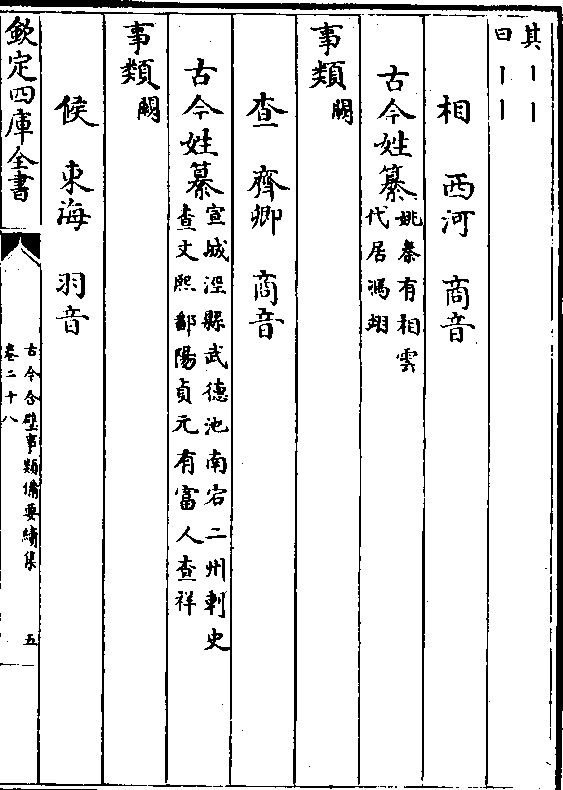 其丨丨
曰丨丨
相 西河 商音
古今姓纂
姚秦有相雲
代居馮翊
事類闕
查 齊卿 商音
古今姓纂
宣城涇縣武德池南宕二州刺史
查文熙鄱陽貞元有富人查祥
事類闕
候 東海 羽音
欽定四庫全書
古今合璧事類備要續集
卷二十八
五